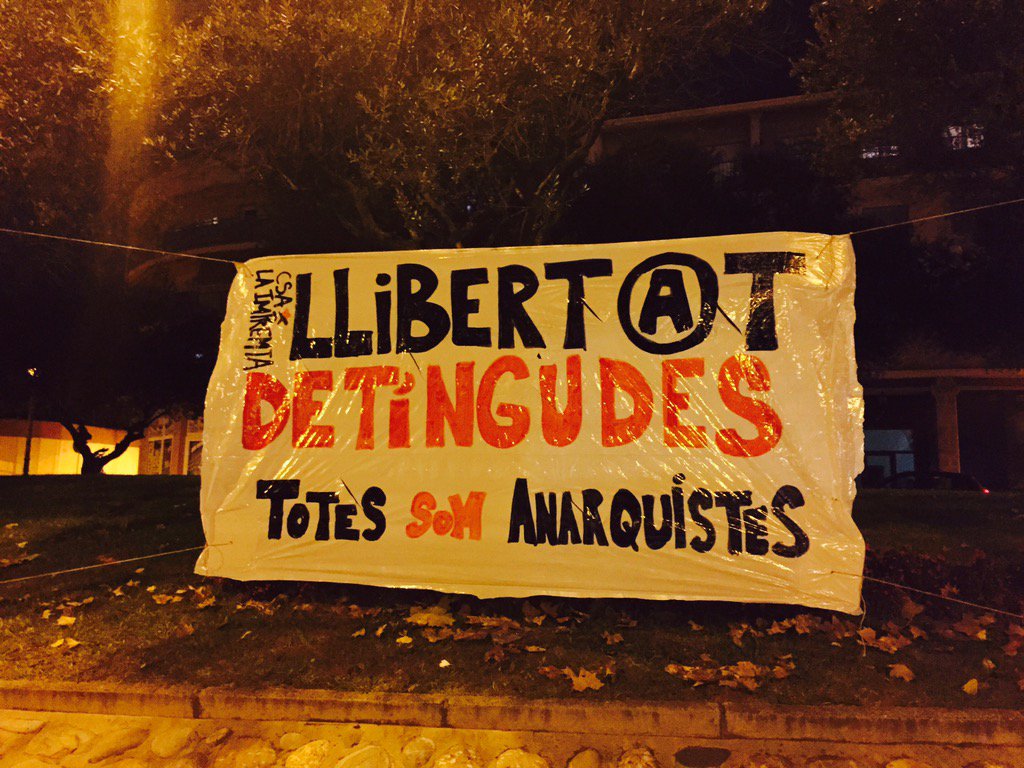 CSA
LA IMPREMTA
LLiBERTⒶT
DETiNGUDES
TOTES SOM ANARQUiSTES